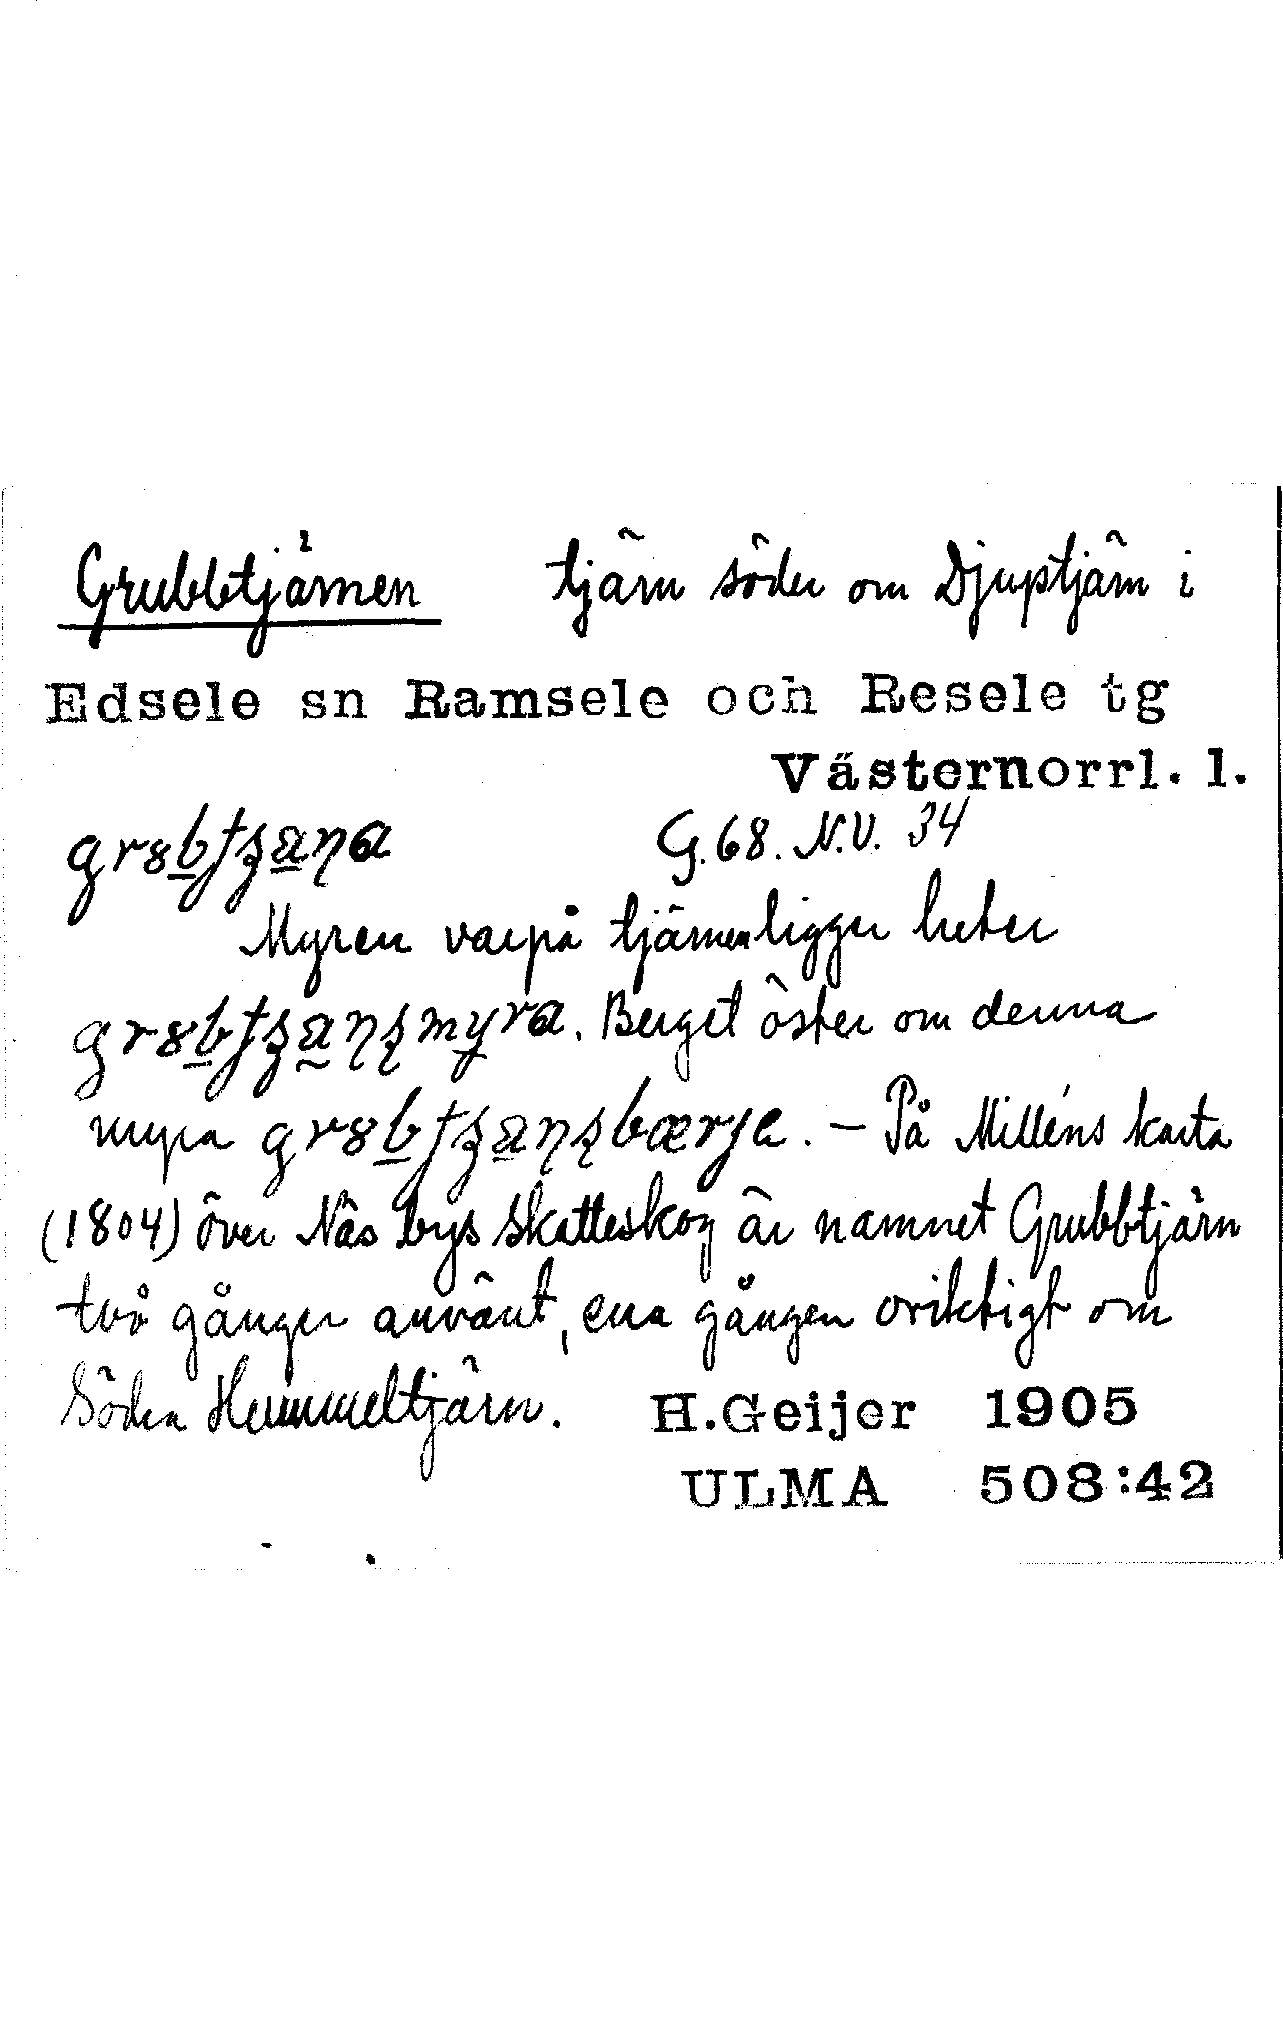 Grubbtjärnen tjärn söder om Djuptjärn i
Edsele sn Ramsele och Resele tg
Västernorrl. l.
G. 68. N.V. 34
Myren varpå tjärnen ligger heter
Berget öster om denna
myra – På Milléns karta
(1804) över Näs bys skatteskog är namnet Grubbtjärn
två gånger använt, ena gången oriktigt om
Södra Hemmeltjärn. H.Geijer 1905
ULMA 508:42